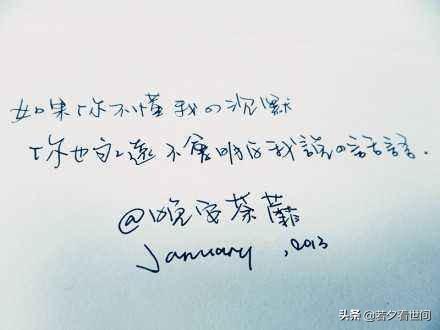 如果你不懂我の沉默
你也永遠不會明白我說の話語.
@晚安荼蘼
January, 2013
头条 @若夕看世间